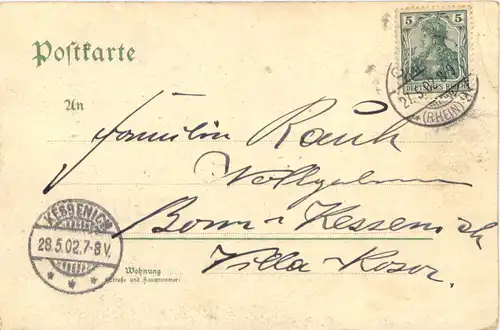 5
DEUTSCHES REICH
Postkarte
27.5.
(RHEIN)
An
Familie Rauh
Wohlgeboren
Bonn-Kessenich
Villa
KESSENICH
28.5.02.7-8V.
Wohnung
(Straße und Hausnummer)